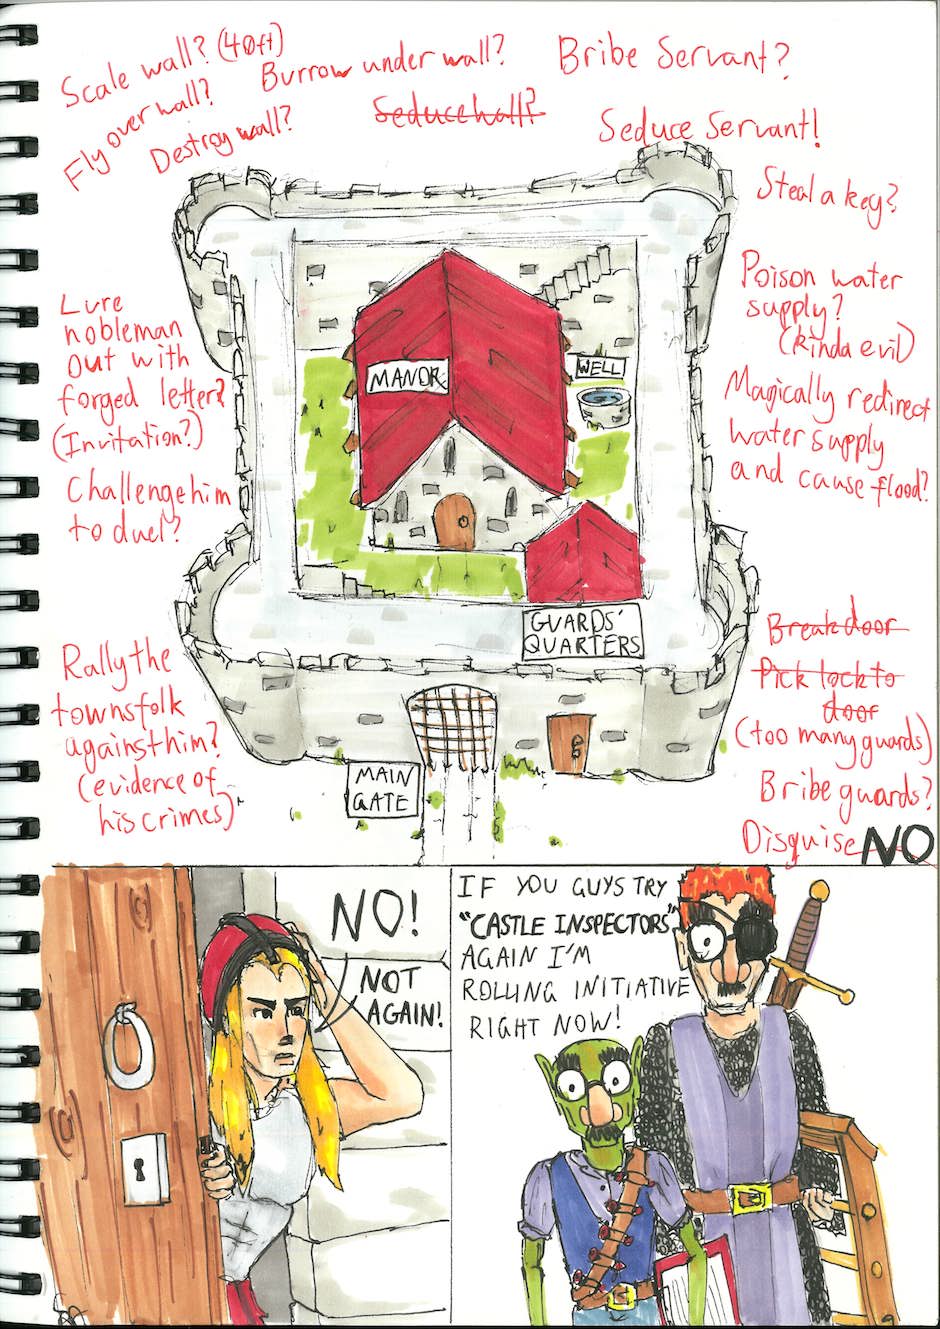 Scale wall? (40ft)
Burrow under wall?
Bribe Servant?
Fly over wall?
Destroy wall?
Seduce wall?
Seduce Servant!
Steal a key?
Poison water
supply?
(kinda evil)
Magically redirect
water supply
and cause flood?
Lure
nobleman
out with
forged letter?
(Invitation?)
Challenge him
to duel?
MANOR
WELL
GUARDS'
QUARTERS
Rally the
townsfolk
against him?
(evidence of
his crimes)
MAIN
GATE
Break door
Pick lock to
door
(too many guards)
Bribe guards?
Disguise NO
NO!
NOT
AGAIN!
IF YOU GUYS TRY
"CASTLE INSPECTORS"
AGAIN I'M
ROLLING INITIATIVE
RIGHT NOW!